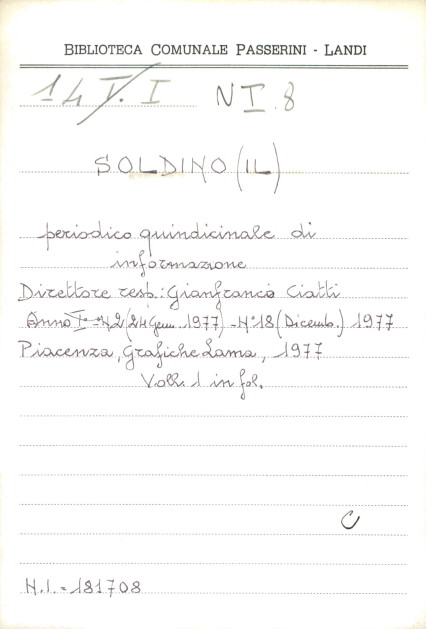 BIBLIOTECA COMUNALE PASSERINI - LANDI
14 V. I N I. 8
SOLDINO (IL)
periodico quindicinale di
informazione
Direttore resp.: Gianfranco Ciatti
Anno I° - N. 2 (24 Genn. 1977) - N° 18 (Dicemb.) 1977
Piacenza, Grafiche Lama, 1977
Voll. 1 in fol.
C
N.I. = 181708